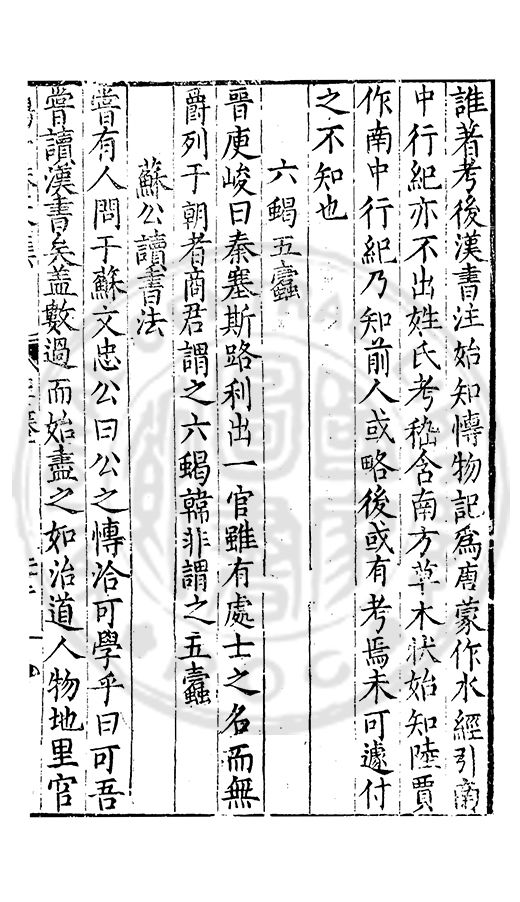 誰著考後漢書注始知慱物記爲唐蒙作水經引南
中行紀亦不出姓氏考嵇含南方草木状始知陸賈
作南中行紀乃知前人或略後或有考焉未可遽付
之不知也
六蝎五蠹
晉庾峻曰秦塞斯路利出一官雖有處士之名而無
爵列于朝者商君謂之六蝎韓非謂之五蠹
蘇公讀書法
嘗有人問于蘇文忠公曰公之慱洽可學乎曰可吾
嘗讀漢書矣盖數過而始盡之如治道人物地里官